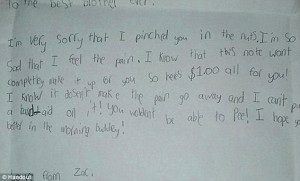 to the best brother ever
I'm very sorry that I pinched you in the nuts. I'm so
sad that I feel the pain. I know that this note wont
completley make it up for you so here's $1.00 all for you!
I know it doesn't make the pain go away and I can't put
a band aid on it! You woldent be able to Pee! I hope you
better in the morning
from Zoe.
© Handout